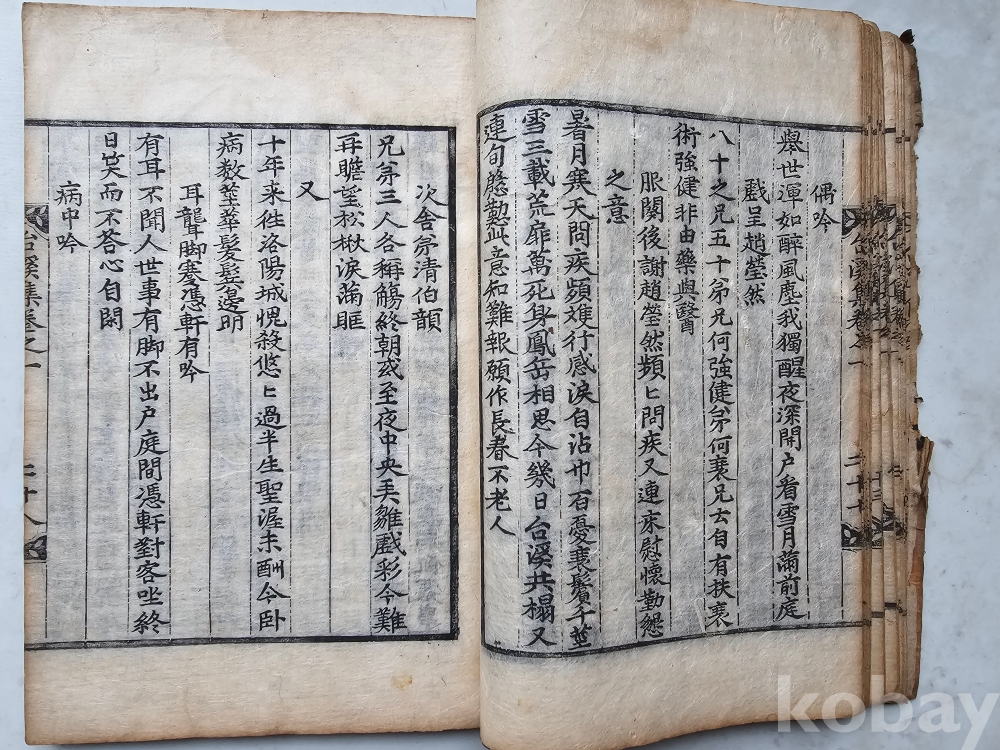 偶吟
擧世渾如醉風塵我獨醒夜深開戶看雪月滿前庭
戱呈趙瑩然
八十之兄五十弟兄何強健弟何衰兄云自有扶衰
術強健非由藥與醫
服闋後謝趙瑩然頻〻問疾又連床慰懷勤怨
之意
暑月寒天問疾頻嫂行感淚自沾巾百憂衰鬢千莖
雪三載荒扉萬死身鳳岳相思今幾日台溪共榻又
連旬慇懃此意知難報願作長春不老人
次舍弟淸伯韻
兄弟三人各稱觴終朝或至夜中央弄雛戱彩今難
再瞻望松楸淚滿眶
又
十年来往洛陽城愧殺悠〻過半生聖渥未酬今卧
病数莖華髮鬂邊明
耳聾脚蹇憑軒有吟
有耳不聞人世事有脚不出戶庭間憑軒對客坐終
日笑而不答心自閑
病中吟
台溪集卷之一
二十八
台溪集卷之一
二十七
kobay